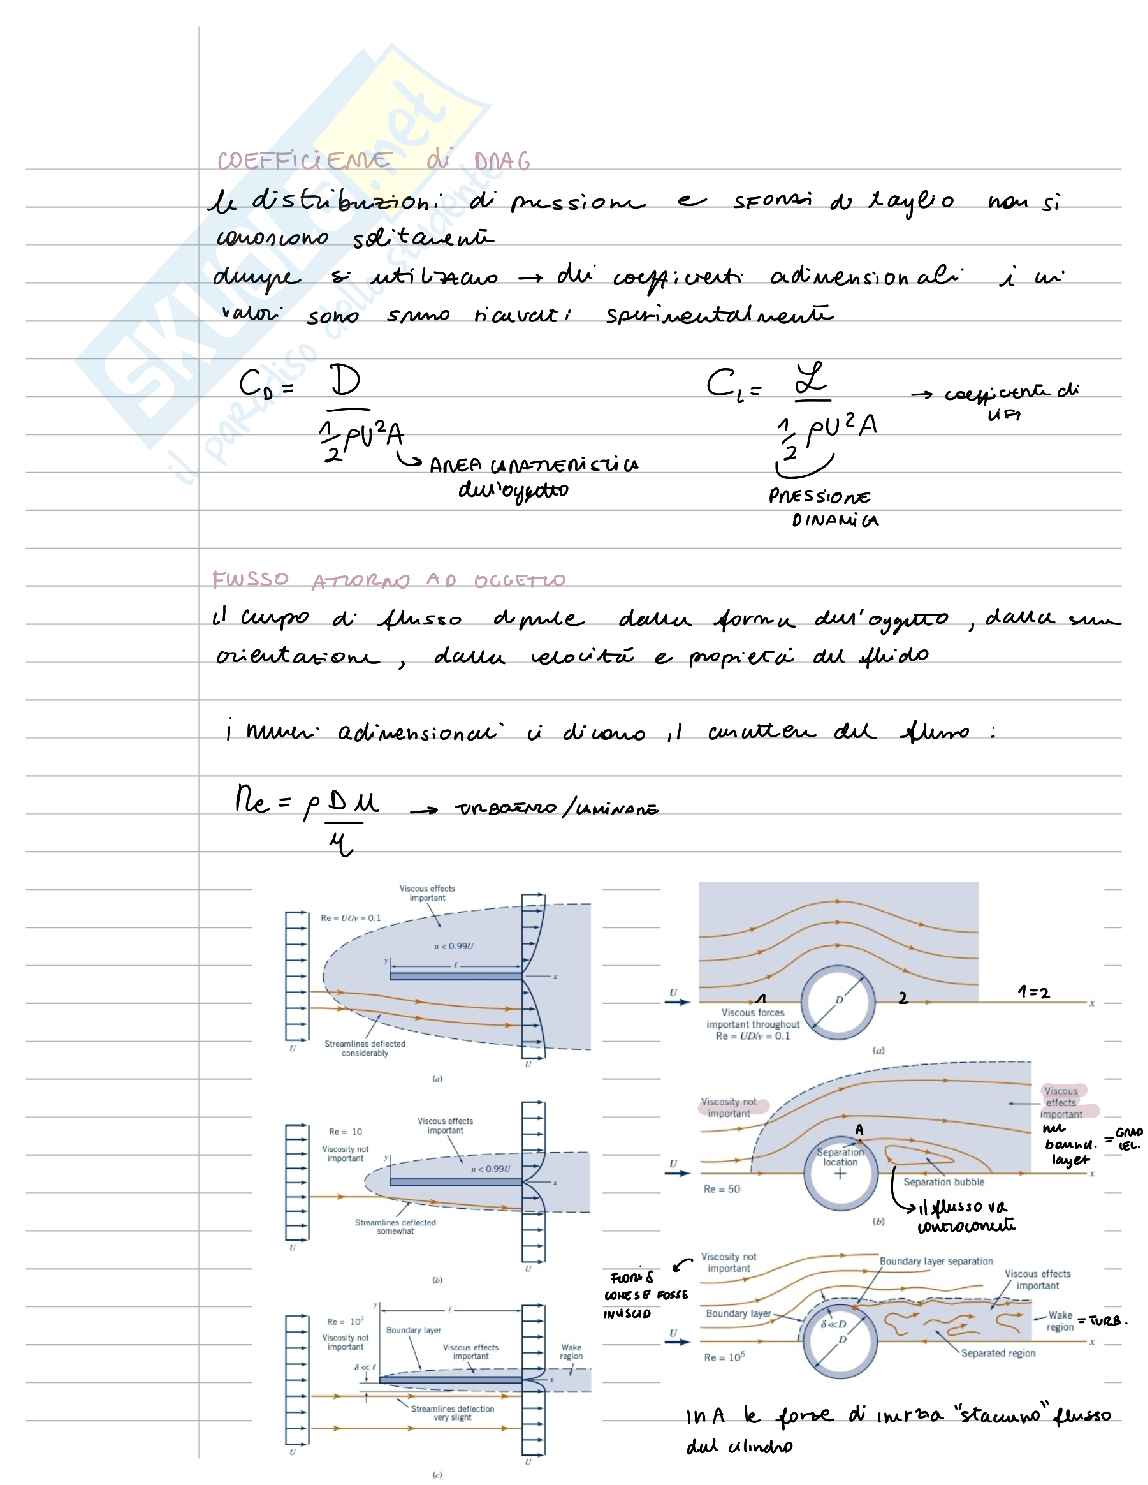 SKUOLA.net
il paradiso dello studente
COEFFICIENTE di DRAG
le distribuzioni di pressione e SFORZI di taglio non si
conoscono solitamente
dunque si utilizzano → dei coefficienti adimensionali i cui
valori sono ricavati sperimentalmente
C_D = D / (1/2 ρU²A)
C_L = L / (1/2 ρU²A) → coefficiente di
LIFT
AREA CARATTERISTICA
dell'oggetto
PRESSIONE
DINAMICA
FLUSSO ATTORNO AD OGGETTO
il campo di flusso dipende dalla forma dell'oggetto, dalla sua
orientazione, dalla velocità e proprietà del fluido
i numeri adimensionali ci dicono il carattere del flusso:
Re = ρDU / η → TURBOLENTO/LAMINARE
Viscous effects
important
Re = Uℓ/ν = 0.1
u < 0.99U
y
ℓ
x
Streamlines deflected
considerably
U
U
(a)
Re = 10
Viscosity not
important
Viscous effects
important
y
u < 0.99U
x
Streamlines deflected
somewhat
U
U
(b)
y
ℓ
Re = 10⁷
Viscosity not
important
Boundary layer
Viscous effects
important
Wake
region
δ << ℓ
x
Streamlines deflection
very slight
U
U
(c)
U
1
D
2
1=2
x
Viscous forces
important throughout
Re = UD/ν = 0.1
(a)
Viscosity not
important
Viscous
effects
important
nel
bound.
layer
= GRAD
VEL.
A
Separation
location
U
Separation bubble
x
Re = 50
il flusso va
controcorrente
(b)
Viscosity not
important
Boundary layer separation
Viscous effects
important
FUORI δ
COME SE FOSSE
INVISCID
Boundary layer
δ << D
D
Wake
region
= TURB.
U
x
Separated region
Re = 10⁵
In A le forze di inerzia "staccano" flusso
dal cilindro